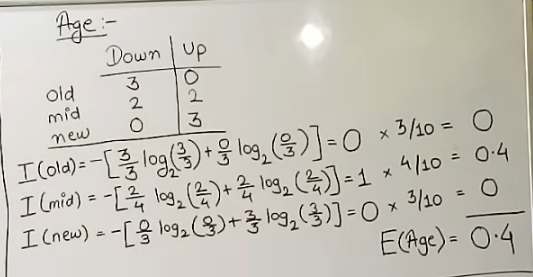 Age :-
Down | Up
old 3 0
mid 2 2
new 0 3
I(old) = -[3/3 log2(3/3) + 0/3 log2(0/3)] = 0 × 3/10 = 0
I(mid) = -[2/4 log2(2/4) + 2/4 log2(2/4)] = 1 × 4/10 = 0.4
I(new) = -[0/3 log2(0/3) + 3/3 log2(3/3)] = 0 × 3/10 = 0
E(Age) = 0.4